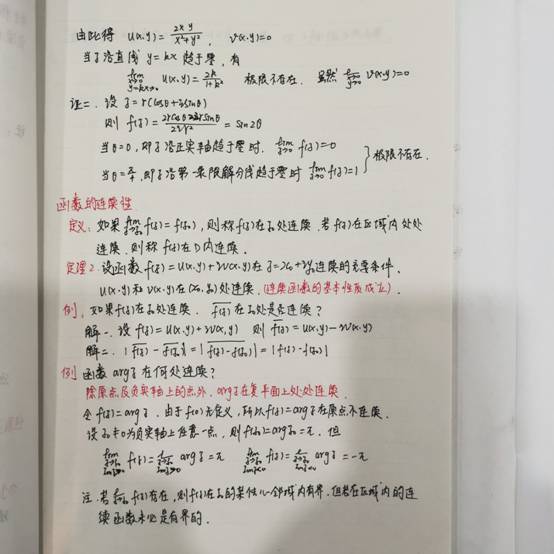 由此得 u(x,y) = 2xy/(x²+y²), v(x,y)=0
当z沿直线 y=kx 趋于零,有
lim_{x→0, y=kx→0} u(x,y) = 2k/(1+k²) 极限不存在. 虽然 lim v(x,y)=0
证二. 设 z=r(cosθ+isinθ)
则 f(z) = 2rcosθ·rsinθ/r² = sin2θ
当θ=0, 即z沿正实轴趋于零时, lim_{z→0} f(z)=0
当θ=π/4, 即z沿第一象限解分线趋于零时 lim_{z→0} f(z)=1 } 极限不存在.
函数的连续性
定义: 如果 lim_{z→z₀} f(z)=f(z₀), 则称f(z)在z₀处连续. 若f(z)在区域内处处
连续, 则称f(z)在D内连续.
定理2. 设函数 f(z)=u(x,y)+iv(x,y)在z=x₀+iy₀连续的充要条件.
u(x,y)和v(x,y)在(x₀,y₀)处连续.(连续函数的基本性质成立).
例, 如果f(z)在z₀处连续. f(z)‾在z₀处是否连续?
解一. 设 f(z)=u(x,y)+iv(x,y) 则 f(z)‾=u(x,y)-iv(x,y)
解二. |f(z)‾-f(z₀)‾|=|(f(z)-f(z₀))‾|=|f(z)-f(z₀)|
例 函数 argz 在何处连续?
除原点及负实轴上的点外, argz在复平面上处处连续.
令f(z)=argz. 由于f(0)无定义,所以f(z)=argz在原点不连续.
设z₀≠0为负实轴上任意一点, 则f(z₀)=argz₀=π. 但
lim_{z→z₀, Imz≥0} f(z)=lim_{z→z₀, Imz≥0} argz=π lim_{z→z₀, Imz<0} f(z)=lim_{z→z₀, Imz<0} argz=-π
注. 若 lim_{z→z₀} f(z)存在,则f(z)在z₀的某个心邻域内有界. 但若在区域内的连
续函数未必是有界的.